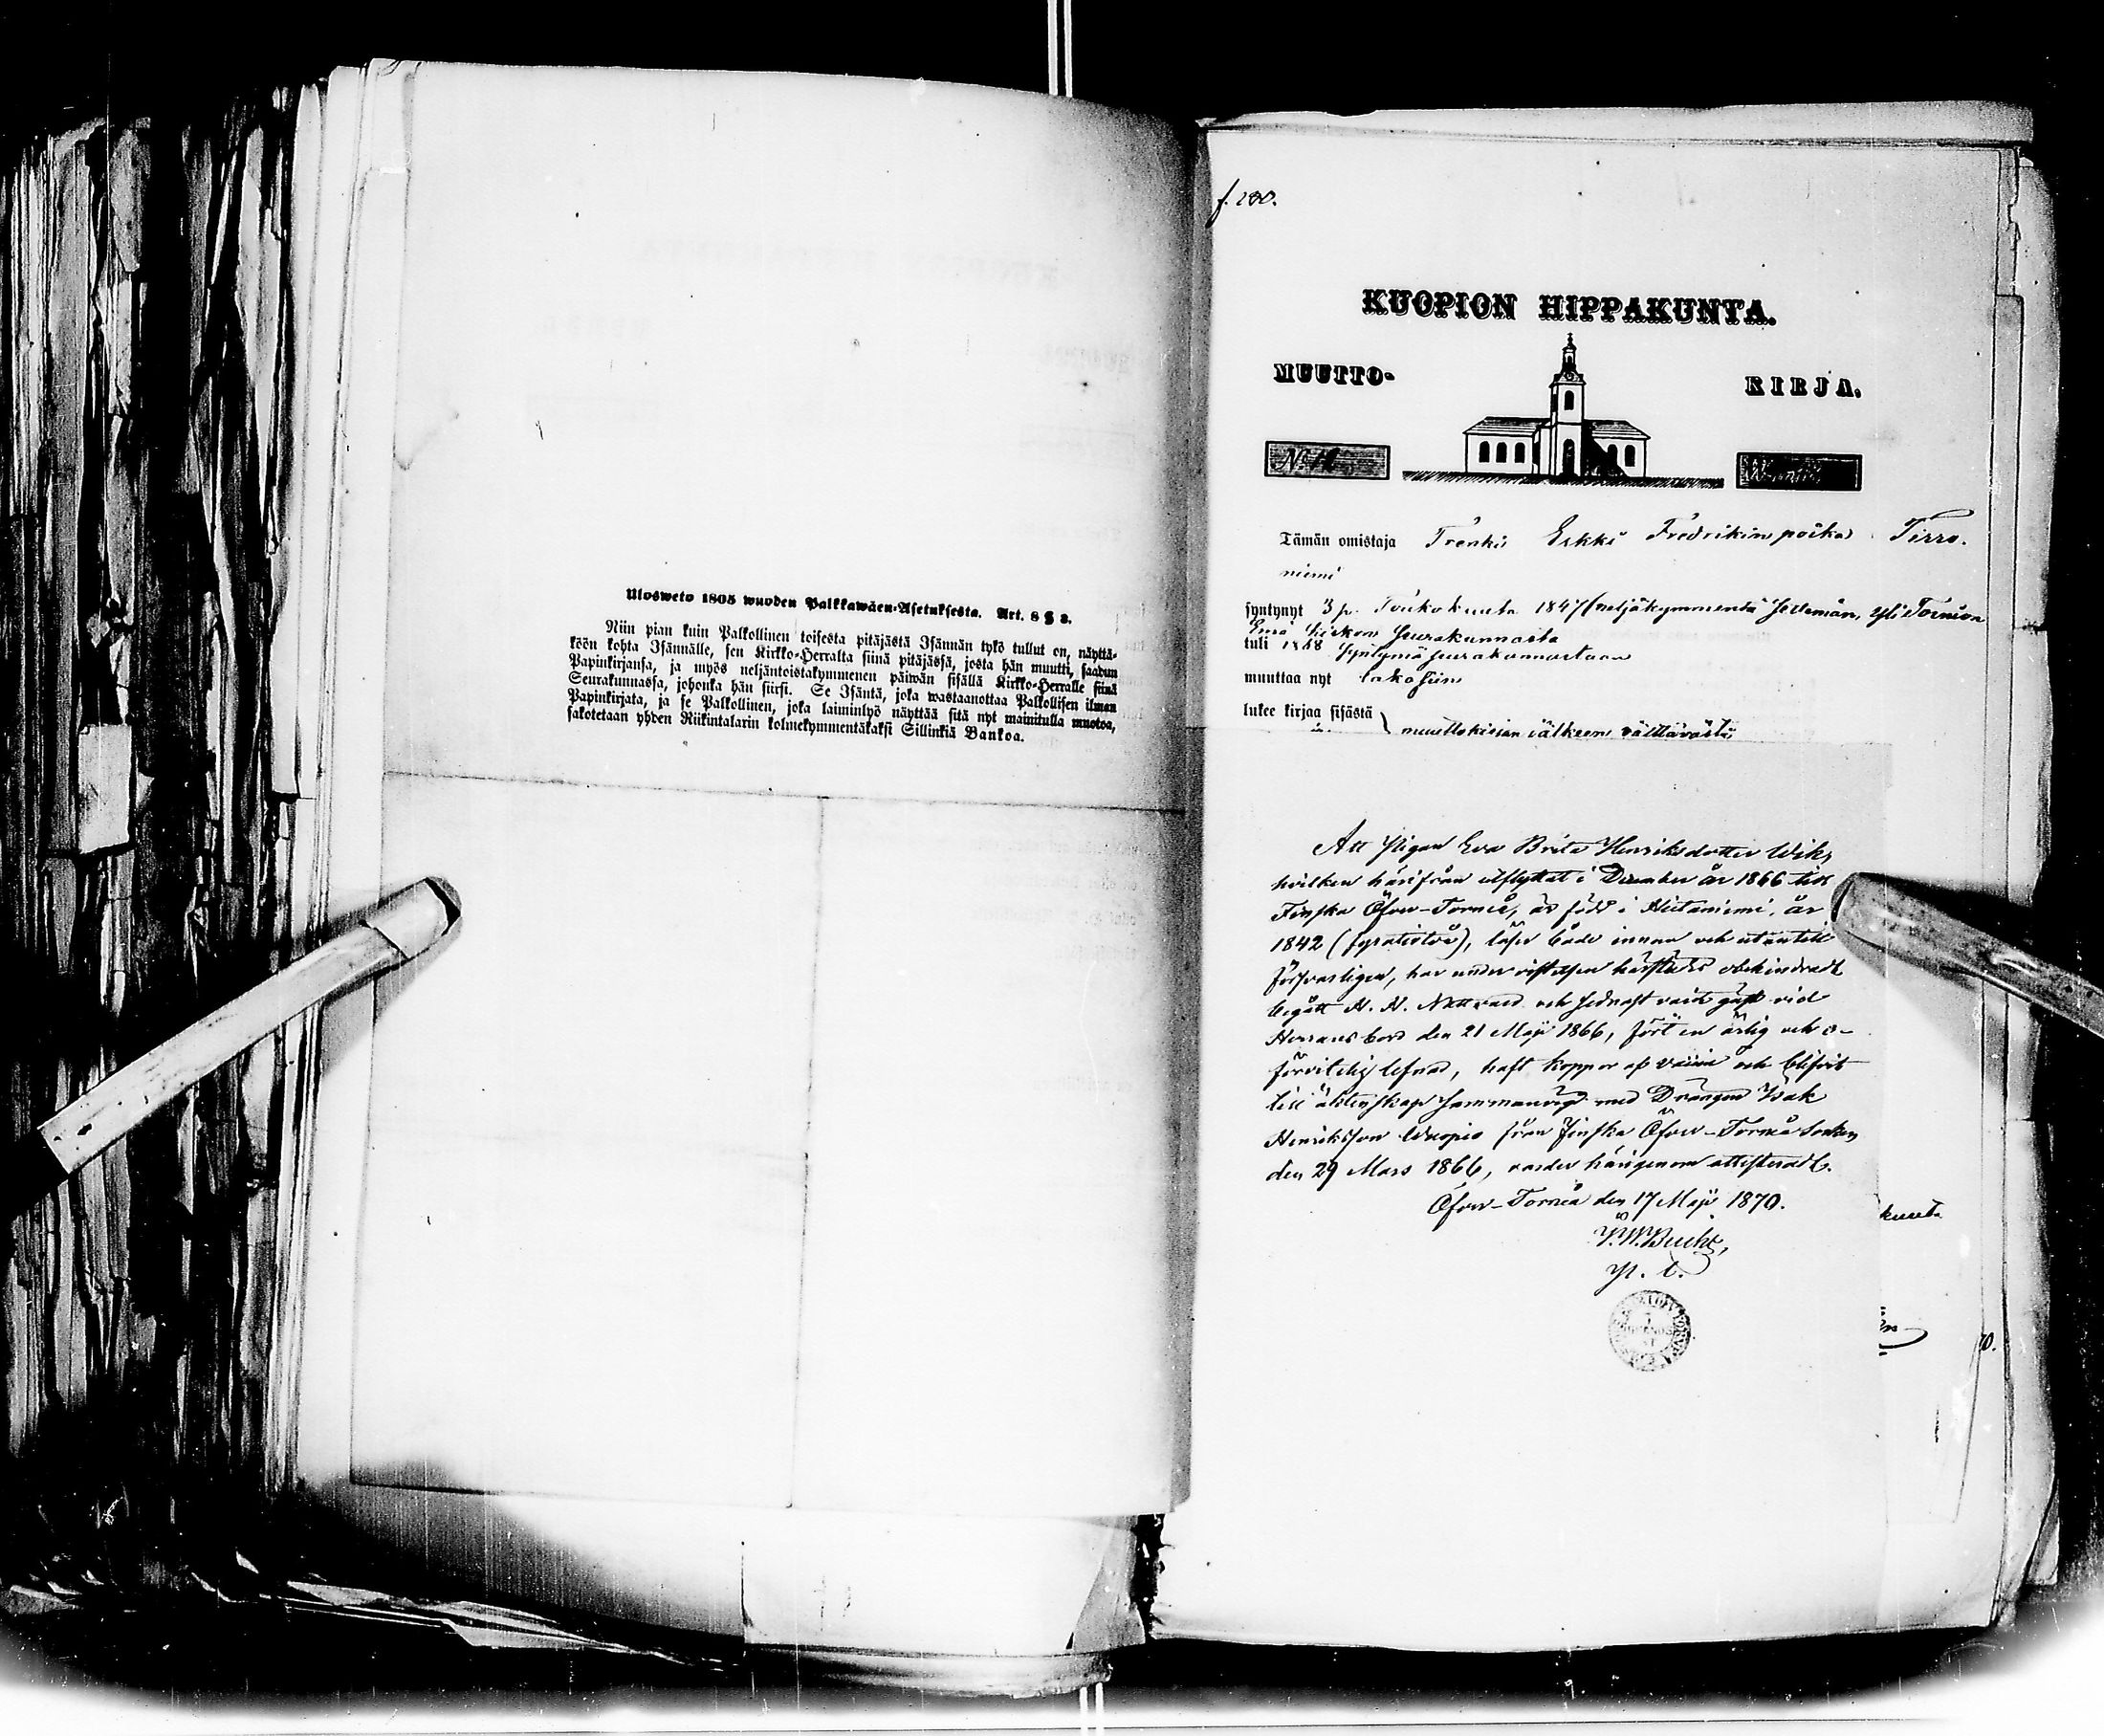 Ulosweto 1805 wuoden Palkkawäen-Asetuksesta. Art. 8 § 2.
Niin pian kuin Palkollinen toisesta pitäjästä Isännän tykö tullut on, näyttä-
köön kohta Isännälle, sen Kirkko-Herralta siinä pitäjässä, josta hän muutti, saadun
Papinkirjansa, ja myös neljäntoistakymmenen päiwän sisällä Kirkko-Herralle siinä
Seurakunnassa, johonka hän siirsi. Se Isäntä, joka wastaanottaa Palkollisen ilman
Papinkirjata, ja se Palkollinen, joka laiminlyö näyttää sitä nyt mainitulla muotoa,
sakotetaan yhden Riikintalarin kolmekymmentäkaksi Sillinkiä Bankoa.
f. 200.
KUOPION HIPPAKUNTA.
MUUTTO- KIRJA.
Tämän omistaja Trenki Erkki Fredrikin poika Tirro.
niemi
syntynyt 3 p. Toukokuuta 1847 (neljäkymmentä seitemän, Yli Tornion
seurakunnasta
tuli 1868 syntymä seurakunnastaan
muuttaa nyt takasiin
lukee kirjaa sisästä
muuttokirjan jälkeen välttävästi
Att Pigan Eva Brita Henriksdotter Wik,
hvilken härifrån utflyttat i December år 1866 till
Finska Öfver-Torneå, är född i Hietaniemi, år
1842 (fyratiotvå), läser både innan och utantill
försvarligen, har under vistelsen härstädes obehindradt
begått H. H. Nattvard och sednast varit gäst vid
Herrans bord den 21 Maji 1866, fört en ärlig och o-
förvitelig lefnad, haft koppor af vaccin och blifvit
till äktenskap sammanvigd med Drängen Isak
Henriksson Wuopio från Finska Öfver-Torneå Socken
den 29 Mars 1866, varder härigenom attesteradt.
Öfver-Torneå den 17 Maji 1870.
P.W.Bucht,
kuuta